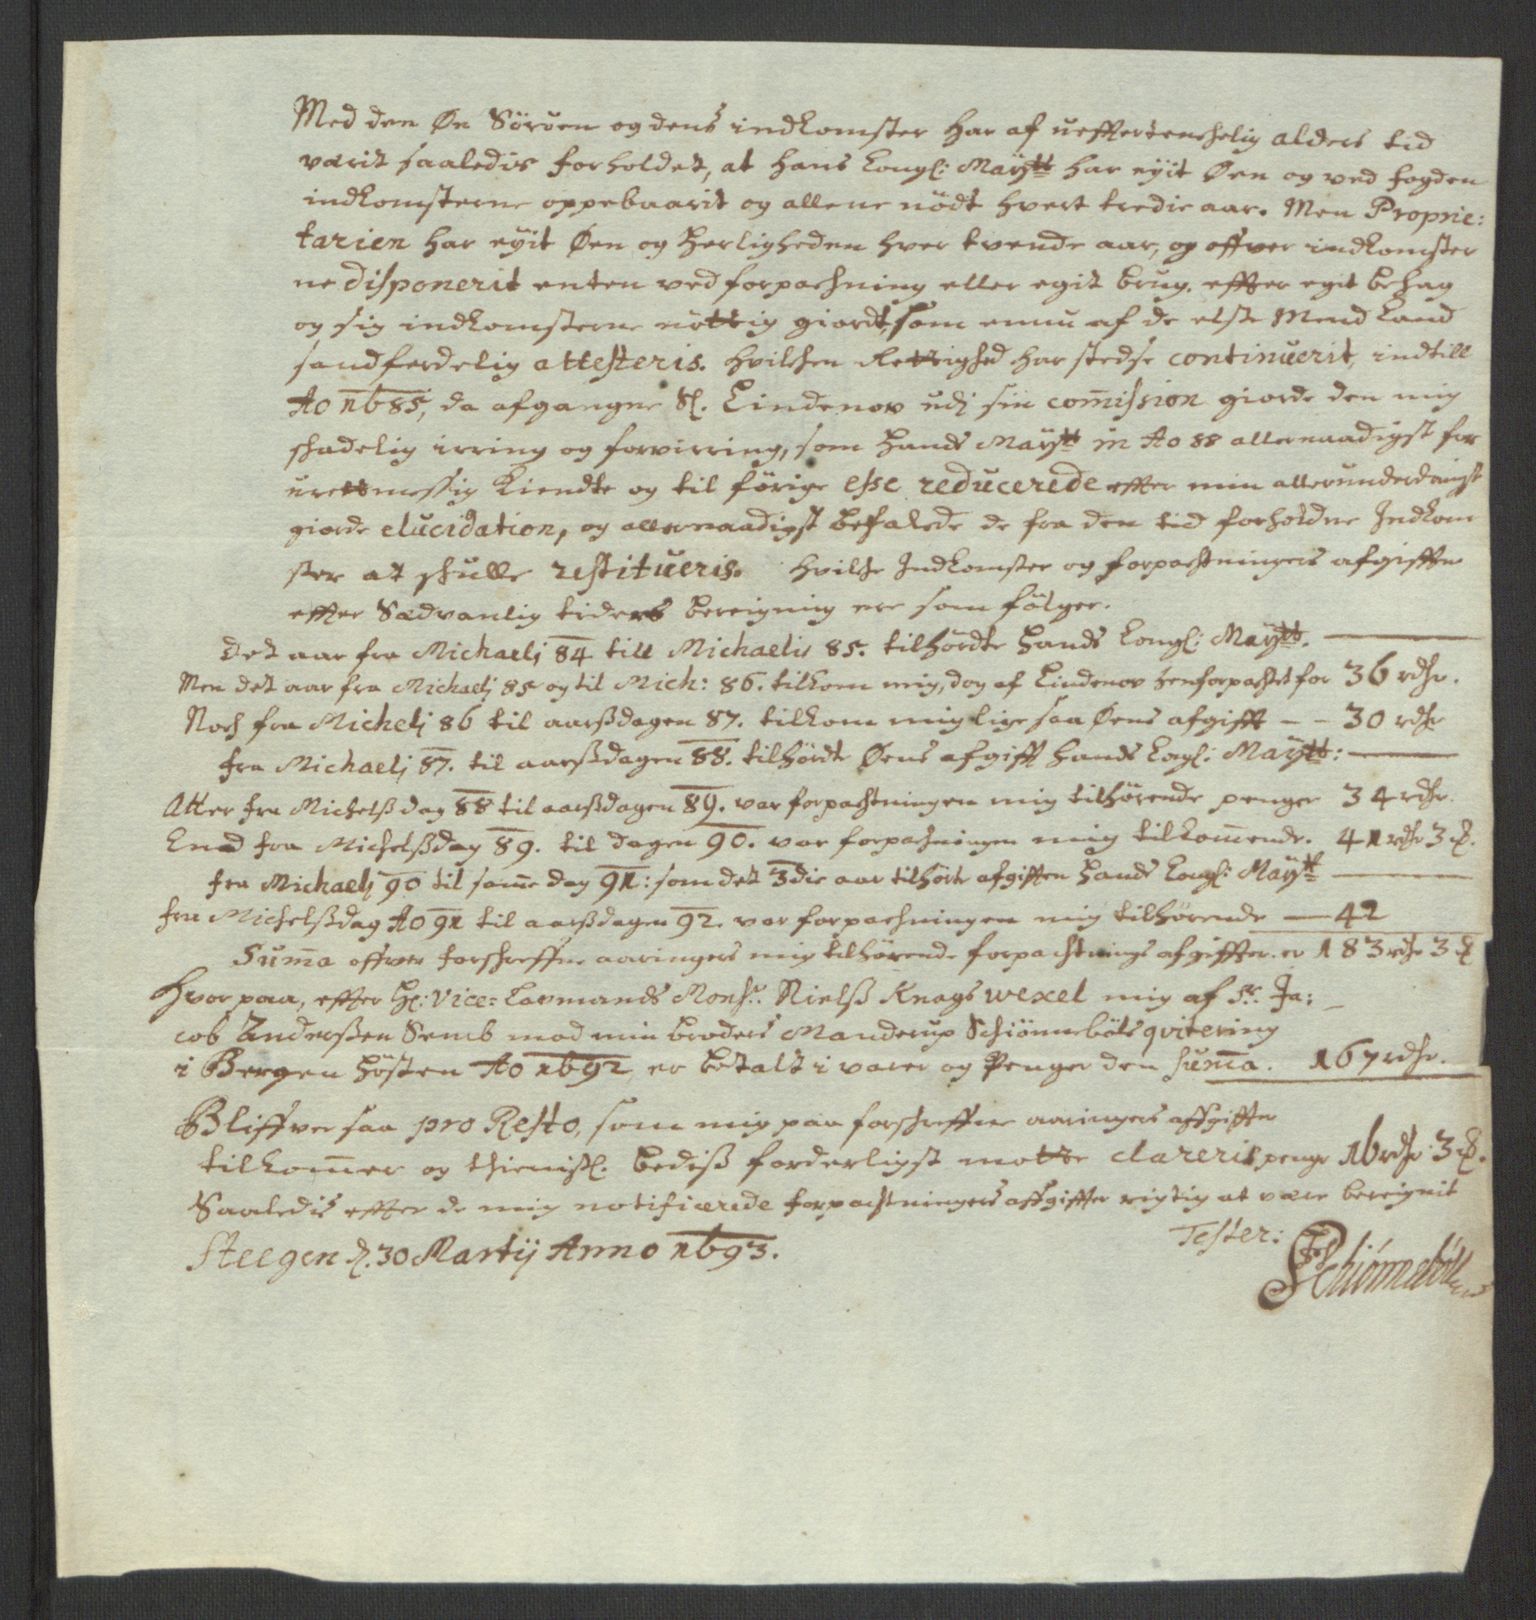 Med den Øe Sörven og dens indkomster har af ueffertenchelig alders tid
værit saaledis forholdet, at hans Kongl: Maÿtt har eÿit Øen og ved fogden
indkomsterne oppebaarit og allene nödt hvert tredie aar. Men Proprie:
tarien har eÿit Øen og Herligheden hver tvende aar, og offver indkomster
ne disponerit enten ved forpachning eller egit brug, effter egit behag
og sig indkomsterne nöttig giordt, som ennu af de elste Mend kand
sandferdelig attesteris. Hvilchen Rettighed har stedse continuerit, indtill
Ao 1685, da afgangne Sl. Lindenov udj sin commission giorde den mig
schadelig irring og forvirring, som Hands Maÿtt in Ao 88 allernaadigst for
urettmessig Kiendte og til förige esse reducerede effter min allerunderdanigst
giorde elucidation, og allernaadigst befalede de fra den tid forholdne Indkom
ster at schulle restitueris. Hvilche Indkomster og forpachtningers afgiffter
effter Sædvanlig tiders bereigning ere som fölger.
Det aar fra Michaelj 84 till Michaelis 85. tilhördte Hands Kongl: Maÿtt.
Men det aar fra Michaelj 85 og til Mich: 86. tilkom mig, dog af Lindenov henforpachtet for 36 rdlr.
Noch fra Michelj 86 til aarßdagen 87. tilkom mig lige saa Øens afgifft - - 30 rdlr
fra Michaelj 87. til aarßdagen 88. tilhördte Øens afgifft Hands Kongl: Maÿtt:
Atter fra Michelßdag 88 til aarßdagen 89. var forpachtningen mig tilhörende penger 34 rdlr.
End fra Michelßdag 89. til dagen 90. var forpachningen mig tilkommende. 41 rdlr 3 ß.
fra Michaelj 90 til samme dag 91: som det 3die aar tilhörte afgiften Hands Kongl: Maÿtt
fra Michelßdag Ao 91 til aarßdagen 92. var forpachningen mig tilhörende — 42
Summa offver forschreffne aaringers mig tilhörende forpachtnings afgiffter er 183 rdlr 3 ß
Hvor paa, effter Hl: Vice: Lavmands Monsr. Nielß Knags wexel mig af Sr. Ja:
cob Anderßen Semb mod min broders Manderup Schiönneböls qvitering
i Bergen Hösten Ao 1692, er betalt i varer og Penger den Summa. 167 rdlr.
Bliffver saa pro Resto, som mig paa forschreffne aaringers affgiffter
tilkommer og thienistl. bediß forderligst motte clareris penge 16 rdlr 3 ß.
Saaledis effter de mig notificerede forpachtningers affgiffter rigtig at være bereignit
Tester:
Steegen d. 30 Martij Anno 1693.
Schiönnebóll